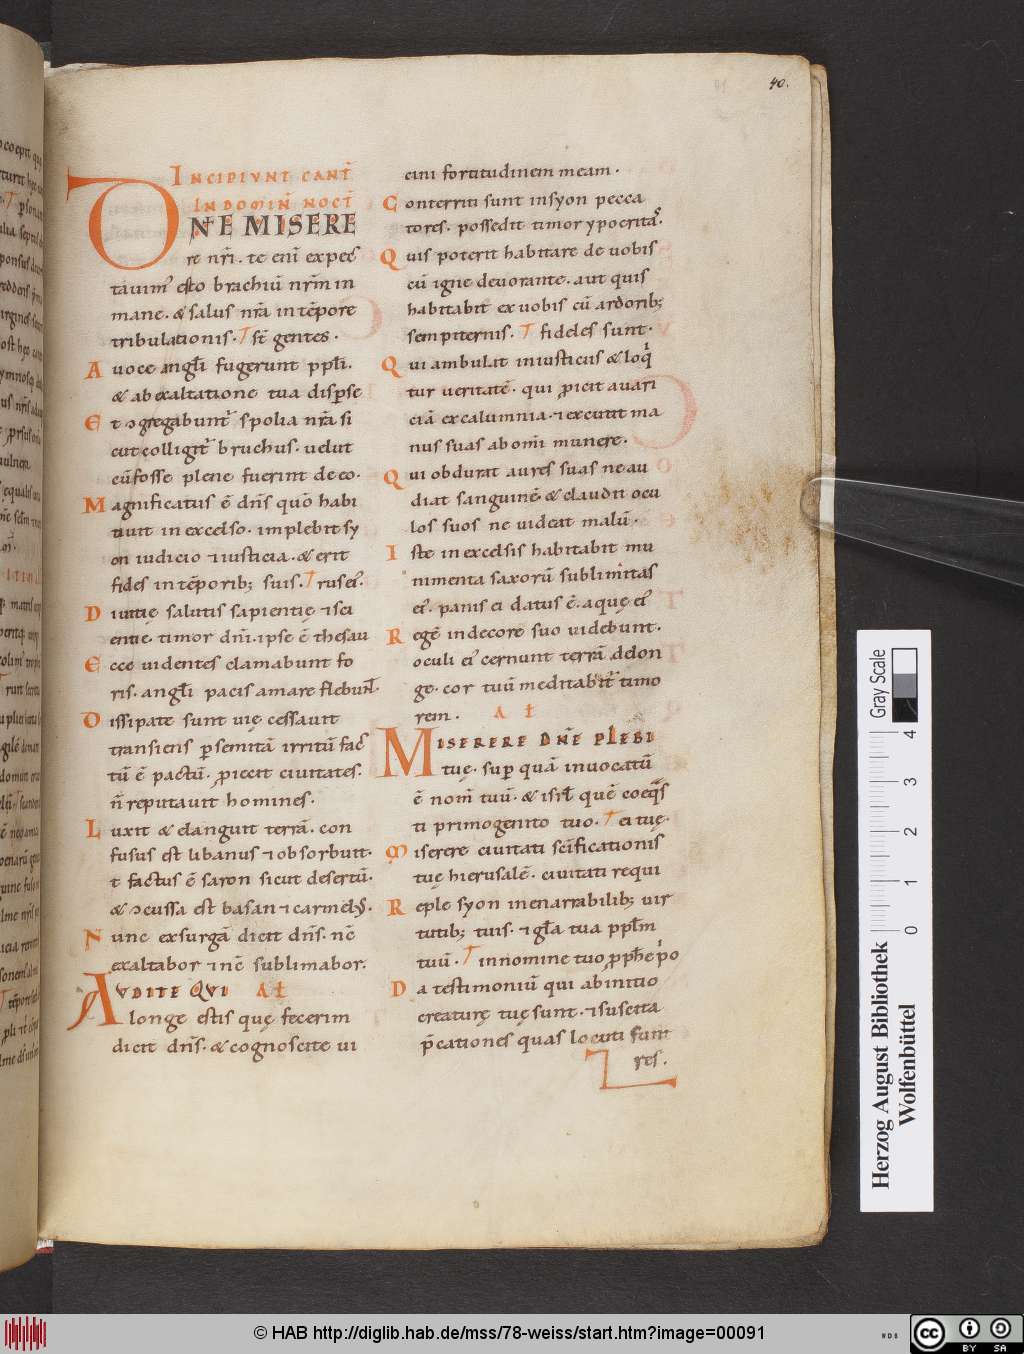 40.
INCIPIVNT CANT̄
IN DOMIN̄ NOCT̄
DN̄E MISERE
re nr̄i. te enī expec
tauim᾿ esto brachiū nr̄m in
mane. & salus nr̄a in tēpore
tribulationis. T st̄ gentes.
A uoce angl̄i fugerunt ppl̄i.
& ab exaltatione tua disꝑse
Et ↄgregabunt᾿ spolia nr̄a si
cut colligit᾿ bruchus. uelut
cū fosse plene fuerint de eo.
Magnificatus ē dn̄s quō habi
tauit in excelso. impleuit sy
on iudicio ⁊ iusticia. & erit
fides in tēporib; suis. T rus ei᾿.
Diuitię salutis sapientię ⁊ sci
entie. timor dn̄i. ipse ē thesau
Ecce uidentes clamabunt fo
ris. angl̄i pacis amare flebun̄t.
Dissipate sunt uię cessauit
transiens ꝑ semitā irritū fac̄
tū ē pactū. ꝓiecit ciuitates.
n̄ reputauit homines.
Luxit & elanguit terra. con
fusus est libanus ⁊ obsorduit.
& factus ē saron sicut desertū.
& ↄcussa est basan ⁊ carmel᾿.
Nunc exsurgā dicit dn̄s. nc̄
exaltabor ⁊ nc̄ sublimabor.
AVDITE QVI A ł
longe estis quę fecerim
dicit dn̄s. & cognoscite ui
cini fortitudinem meam.
Conterriti sunt in syon pecca
tores. possedit timor ypocritas.
Quis poterit habitare de uobis
cū igne deuorante. aut quis
habitabit ex uobis cū ardorib;
sempiternis. T fideles sunt.
Qui ambulat in iusticiis & loq̇
tur ueritatē. qui ꝓicit auari
ciā ex calumnia. ⁊ excutit ma
nus suas ab om̄i munere.
Qui obdurat aures suas ne au
diat sanguinē & claudit ocu
los suos ne uideat malū.
Iste in excelsis habitabit mu
nimenta saxorū sublimitas
ei᾿. panis ei datus ē. aquę ei᾿
Regē in decore suo uidebunt.
oculi ei᾿ cernunt terrā de lon
ge. cor tuū meditabit᾿ timo
rem. A ł
MISERERE DN̄E PLEBI
tuę. sup̄ quā inuocatū
ē nom̄ tuū. & isr̄l quē coeq̄s
ti primogenito tuo. T ei tuę.
Miserere ciuitati sc̄ificationis
tuę hierusalē. ciuitati requi
Reple syon inenarrabilib; uir
tutib; tuis. ⁊ gl̄a tua ppl̄m
tuū. T in nomine tuo ꝓph̄e p̓o
Da testimoniū qui ab initio
creaturę tuę sunt. ⁊ suscita
p̄cationes quas locuti sunt
res.
Herzog August Bibliothek
Wolfenbüttel
0 1 2 3 4
Gray Scale
© HAB http://diglib.hab.de/mss/78-weiss/start.htm?image=00091
WDB
cc BY SA